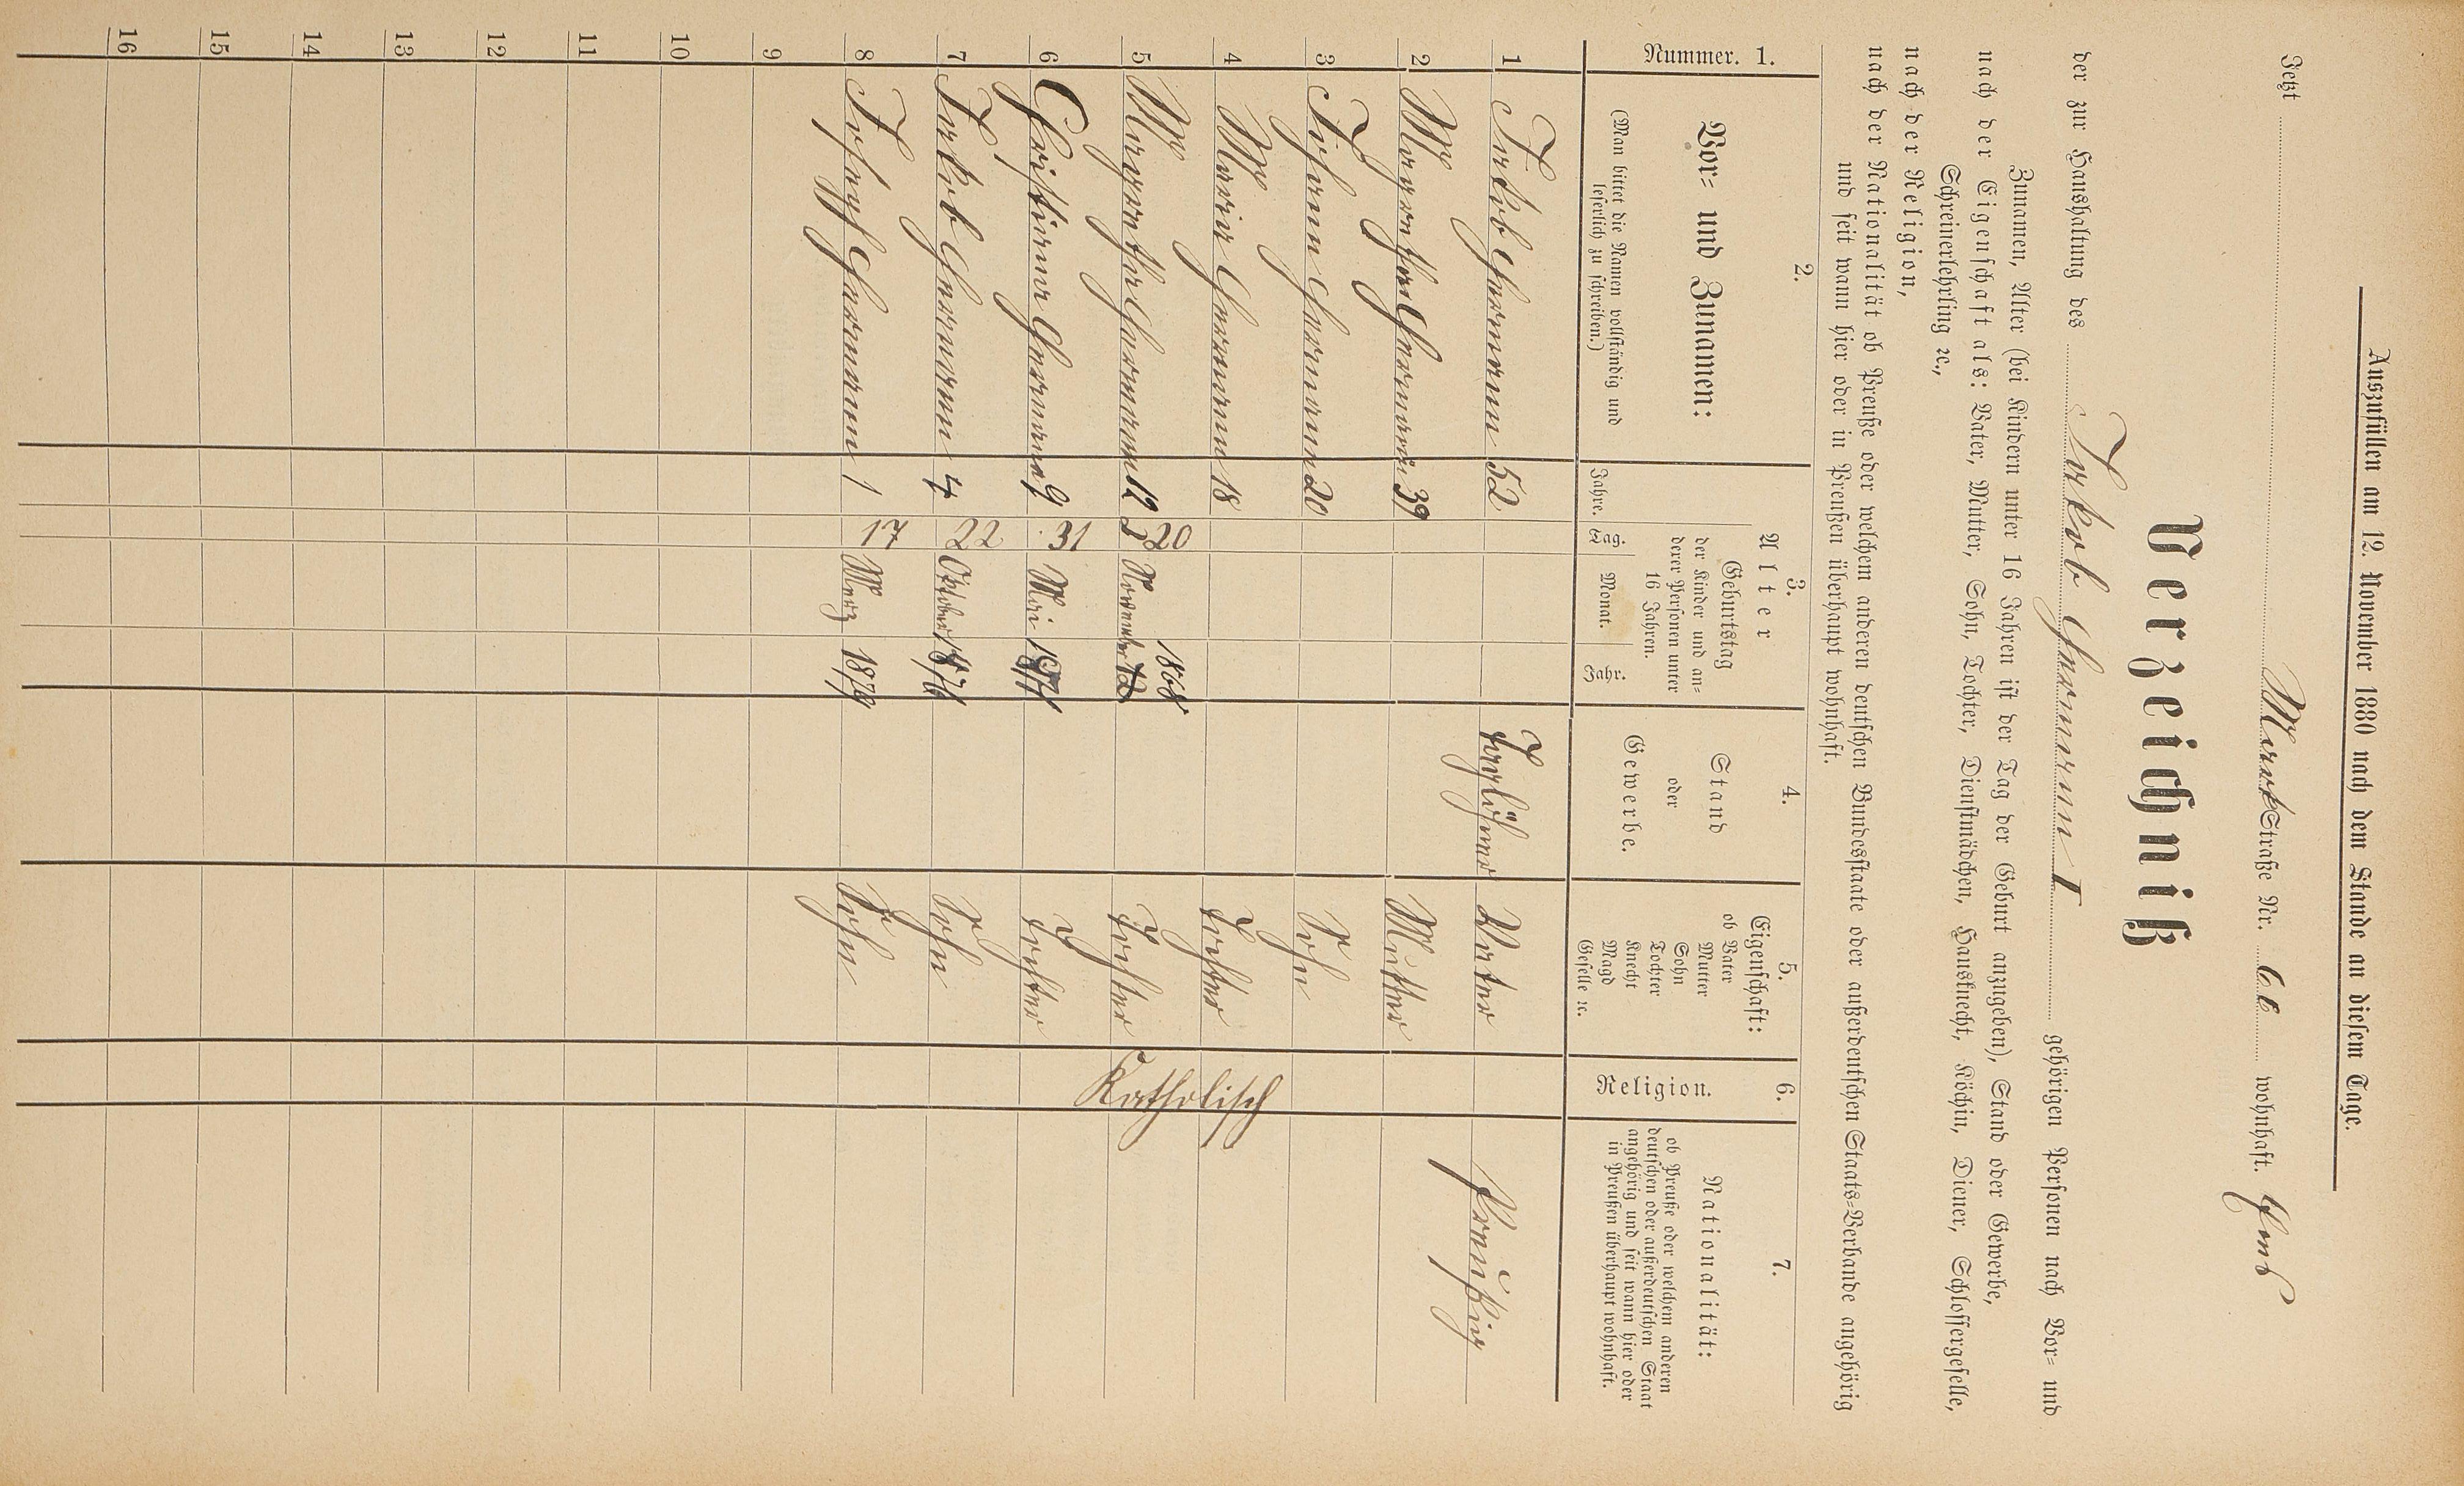 Auszufüllen am 12. November 1880 nach dem Stande an diesem Tage.
Jetzt Markt Straße Nr. 66 wohnhaft.
Verzeichniß
der zur Haushaltung des Jakob Hermann I gehörigen Personen nach Vor= und
Zunamen, Alter (bei Kindern unter 16 Jahren ist der Tag der Geburt anzugeben), Stand oder Gewerbe,
nach der Eigenschaft als: Vater, Mutter, Sohn, Tochter, Dienstmädchen, Hausknecht, Köchin, Diener, Schlossergeselle,
Schreinerlehrling ꝛc.,
nach der Religion,
nach der Nationalität ob Preuße oder welchem anderen deutschen Bundesstaate oder außerdeutschen Staats=Verbande angehörig
und seit wann hier oder in Preußen überhaupt wohnhaft.
Nummer. 1.
2.
Vor= und Zunamen:
(Man bittet die Namen vollständig und
leserlich zu schreiben.)
3.
Alter
Jahre.
Geburtstag
der Kinder und an=
derer Personen unter
16 Jahren.
Tag. Monat. Jahr.
4.
Stand
oder
Gewerbe.
5.
Eigenschaft:
ob Vater
Mutter
Sohn
Tochter
Knecht
Magd
Geselle ꝛc.
6.
Religion.
7.
Nationalität:
ob Preuße oder welchem anderen
deutschen oder außerdeutschen Staat
angehörig und seit wann hier oder
in Preußen überhaupt wohnhaft.
1 Jakob Hermann 52 Taglöhner Vater
2 Margaretha Hermann 39 Mutter
3 Johann Hermann 20 Sohn
4 Maria Hermann 18 Tochter
5 Margaretha Hermann 12 20 November 1868 Tochter
6 Christiena Hermann 9 31 Mai 1871 Tochter
7 Jakob Hermann 4 22 Oktober 1876 Sohn
8 Joseph Hermann 1 17 Merz 1879 Sohn
Katholisch
9
10
11
12
13
14
15
16